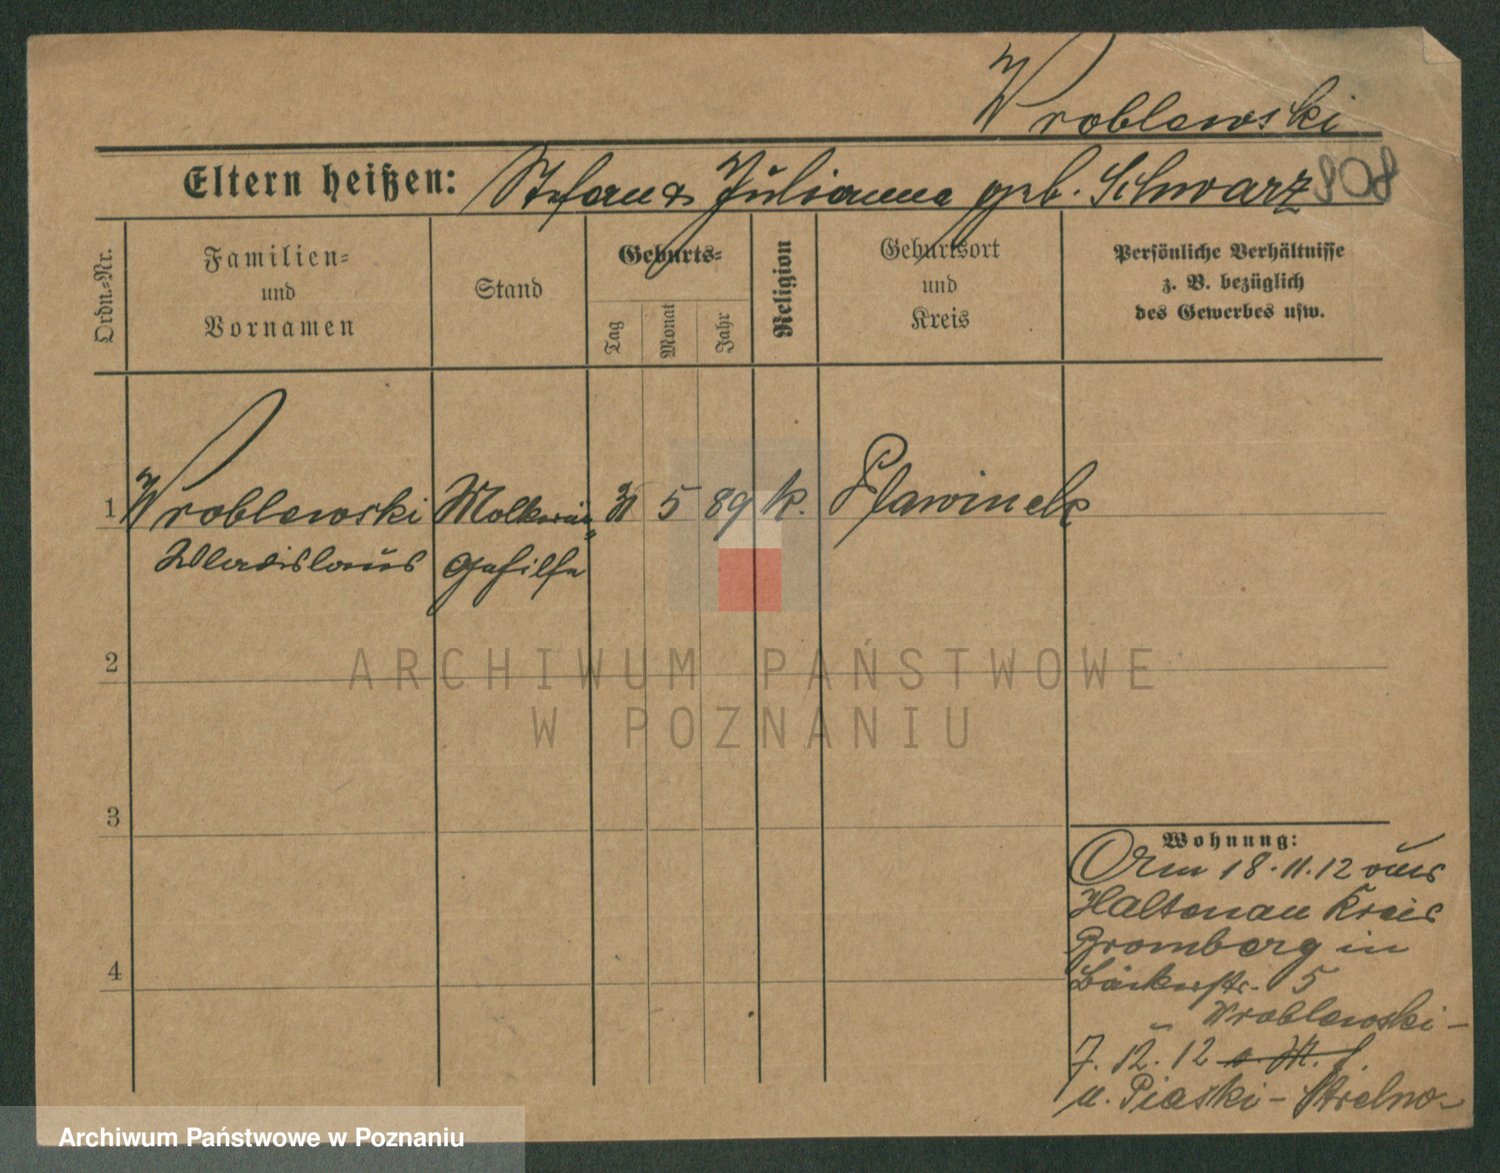 Wroblewski
Eltern heißen: Stefan & Julianna geb. Schwarz 808
Ordn.-Nr.
Familien-
und
Vornamen
Stand
Geburts-
Tag
Monat
Jahr
Religion
Geburtsort
und
Kreis
Persönliche Verhältnisse
z. B. bezüglich
des Gewerbes usw.
1 Wroblewski Molkerei= 31 5 89 k. Plawinek
Wladislaus Gehilfe
2
3
4
Wohnung:
Am 18.11.12 aus
Haltenau Kreis
Bromberg in
Bäckerstr. 5
Wroblewski -
7.12.12
u. Piaski - Strelno -
ARCHIWUM PAŃSTWOWE
W POZNANIU
Archiwum Państwowe w Poznaniu